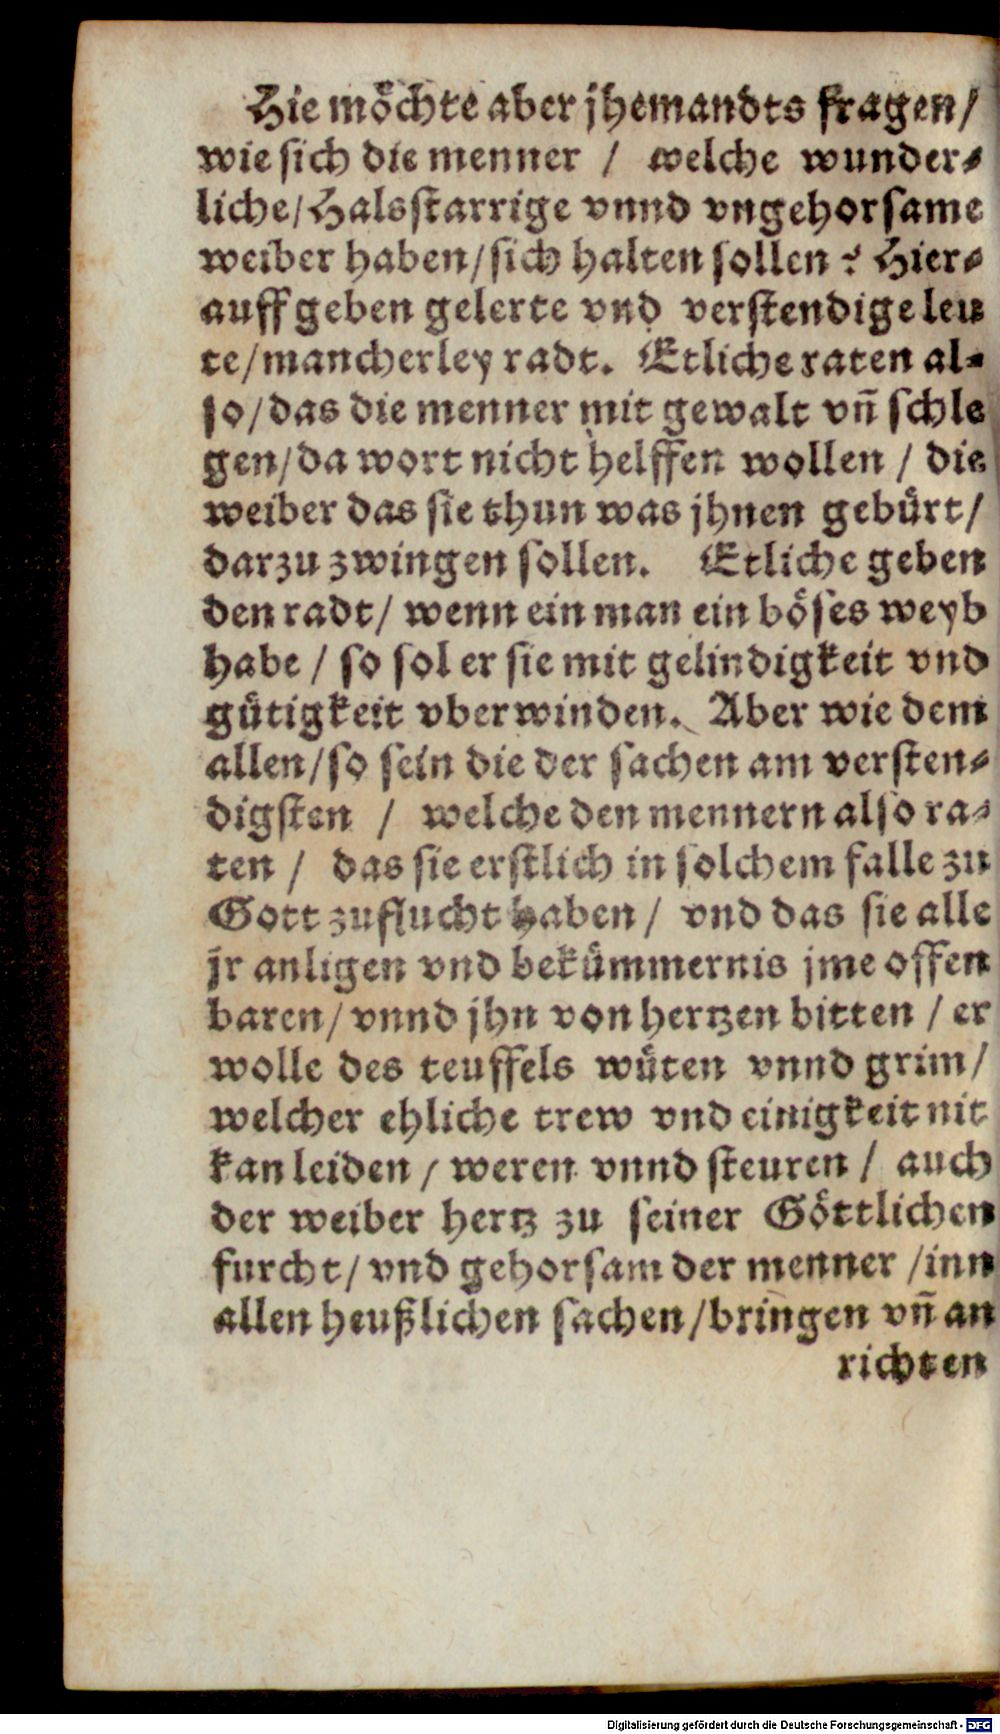 Hie möchte aber jhemandts fragen/
wie sich die menner / welche wunder⸗
liche/Halsstarrige vnnd vngehorsame
weiber haben/sich halten sollen ? Hier⸗
auff geben gelerte vnd verstendige leu
te/mancherley radt. Etliche raten al⸗
so/das die menner mit gewalt vñ schle
gen/da wort nicht helffen wollen / die
weiber das sie thun was jhnen gebürt/
darzu zwingen sollen. Etliche geben
den radt/ wenn ein man ein böses weyb
habe / so sol er sie mit gelindigkeit vnd
gütigkeit vberwinden. Aber wie dem
allen/so sein die der sachen am versten⸗
digsten / welche den mennern also ra⸗
ten / das sie erstlich in solchem falle zu
Gott zuflucht haben/ vnd das sie alle
jr anligen vnd bekümmernis jme offen
baren/ vnnd jhn von hertzen bitten / er
wolle des teuffels wüten vnnd grim/
welcher ehliche trew vnd einigkeit nit
kan leiden / weren vnnd steuren / auch
der weiber hertz zu seiner Göttlichen
furcht/ vnd gehorsam der menner /inn
allen heußlichen sachen/bringen vñ an
richten
Digitalisierung gefördert durch die Deutsche Forschungsgemeinschaft - DFG